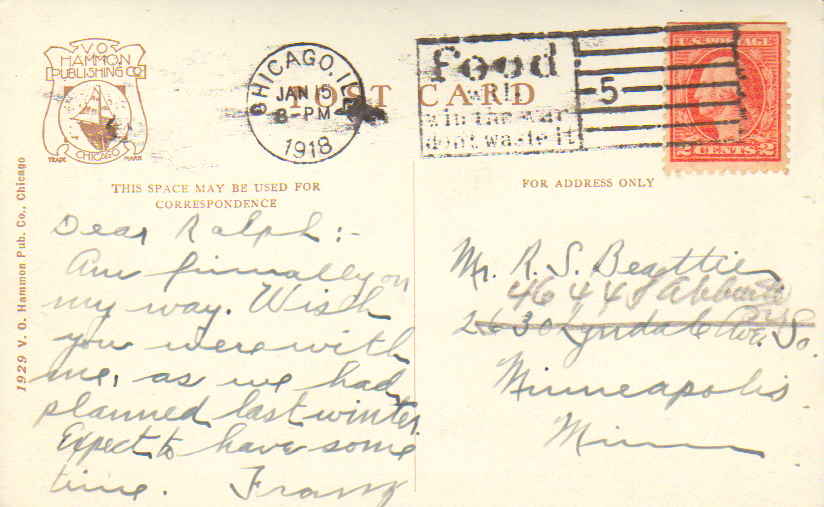 V.O.
HAMMON
PUBLISHING CO
TRADE MARK
CHICAGO
CHICAGO, ILL
JAN 15
8-PM
1918
POST CARD
Food
will
win the war
dont waste it
5
U.S. POSTAGE
2 CENTS 2
THIS SPACE MAY BE USED FOR
CORRESPONDENCE
FOR ADDRESS ONLY
1929 V. O. Hammon Pub. Co., Chicago
Dear Ralph:-
Am finnally on
my way. Wish
you were with
me, as we had
planned last winter.
Expect to have some
time.
Mr. R. S. Beattie
2630 Lyndale Ave. So.
Minneapolis
Minn